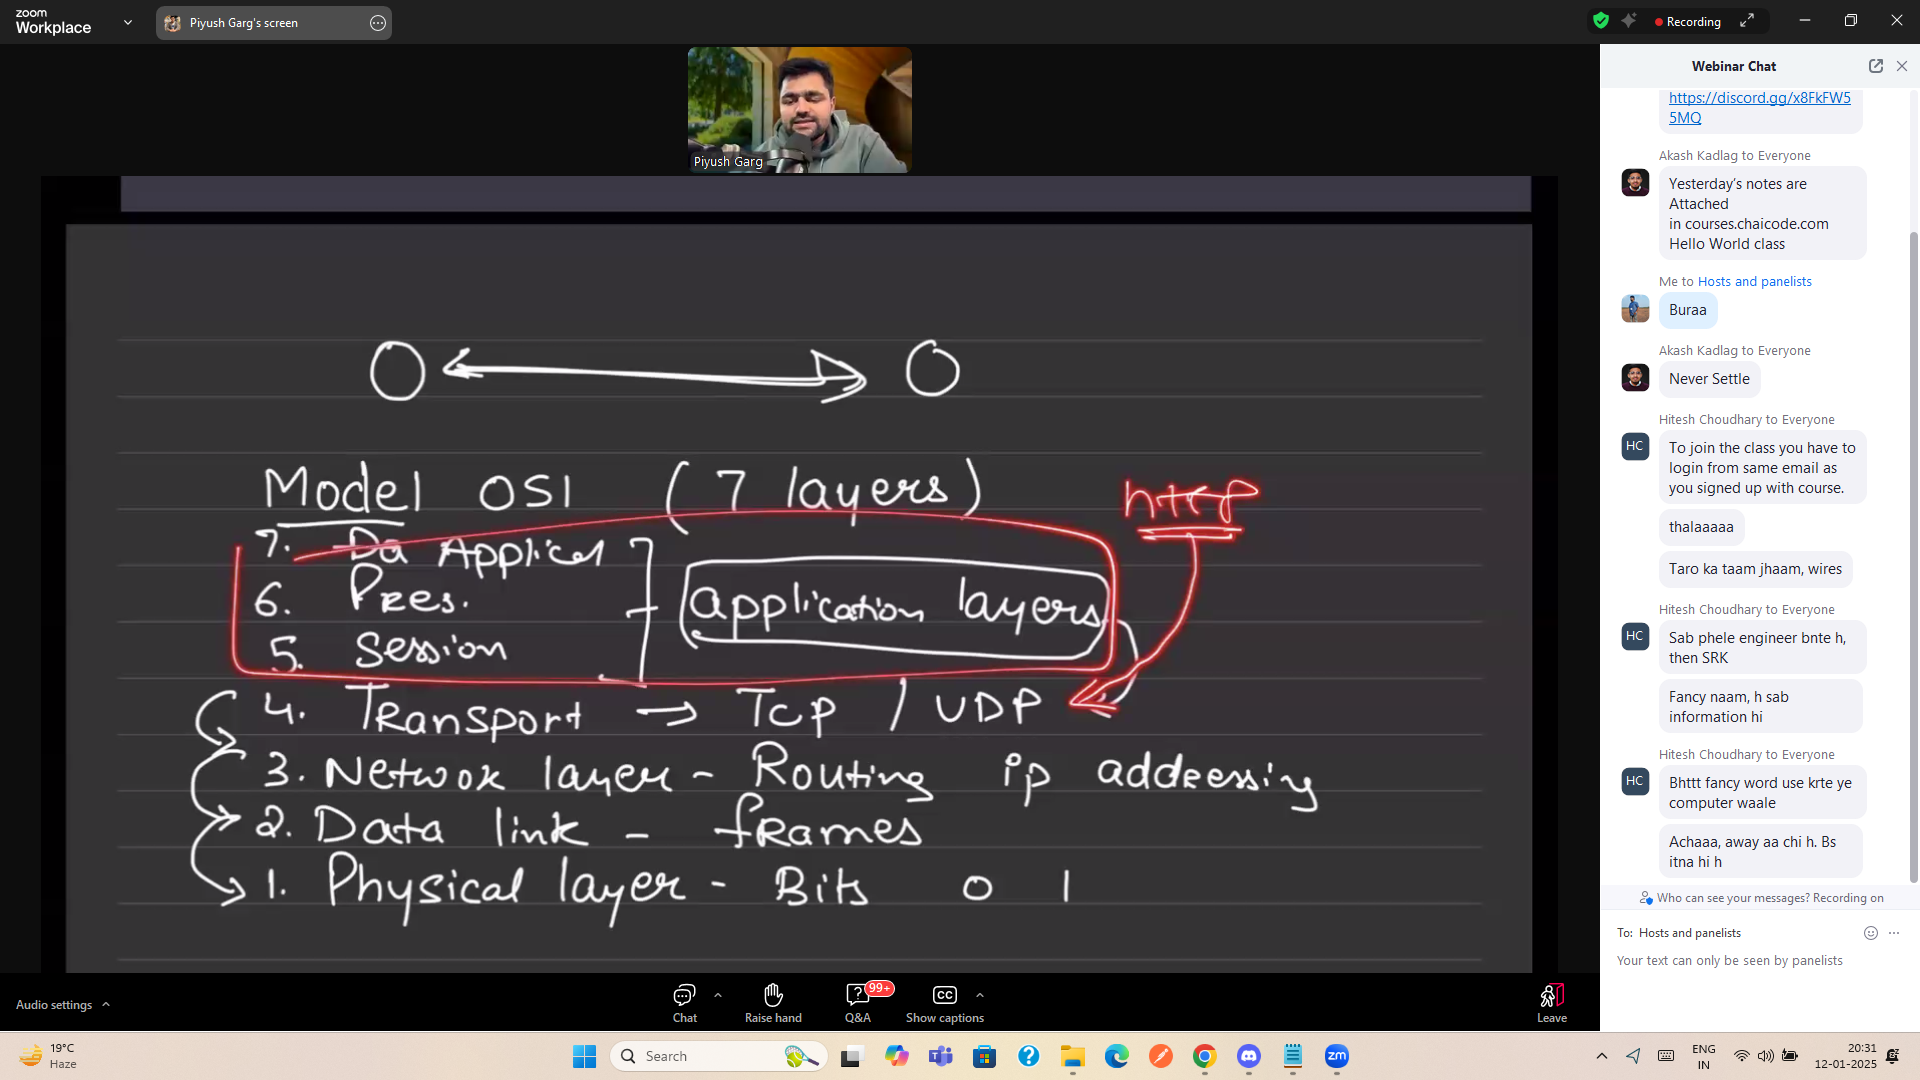 zoom
Workplace
Piyush Garg's screen
Recording
Piyush Garg
Model OSI (7 layers)
http
7. Da Applicat
6. Pres.
application layers
5. Session
4. Transport → TCP / UDP
3. Netwok layer - Routing ip addressing
2. Data link - frames
1. Physical layer - Bits 0 1
Webinar Chat
https://discord.gg/x8FkFW5
5MQ
Akash Kadlag to Everyone
Yesterday's notes are
Attached
in courses.chaicode.com
Hello World class
Me to Hosts and panelists
Buraa
Akash Kadlag to Everyone
Never Settle
Hitesh Choudhary to Everyone
HC
To join the class you have to
login from same email as
you signed up with course.
thalaaaaa
Taro ka taam jhaam, wires
Hitesh Choudhary to Everyone
HC
Sab phele engineer bnte h,
then SRK
Fancy naam, h sab
information hi
Hitesh Choudhary to Everyone
HC
Bhttt fancy word use krte ye
computer waale
Achaaa, away aa chi h. Bs
itna hi h
Who can see your messages? Recording on
To: Hosts and panelists
Your text can only be seen by panelists
Audio settings
Chat
Raise hand
99+
Q&A
CC
Show captions
Leave
19°C
Haze
Search
zm
ENG
IN
20:31
12-01-2025